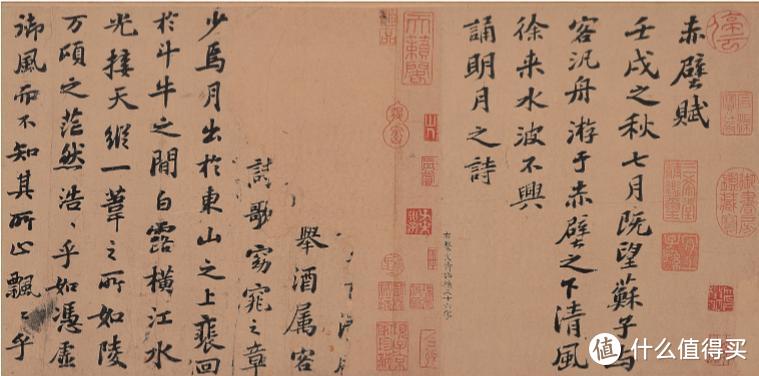 赤壁賦
壬戌之秋七月既望蘇子与
客汎舟游于赤壁之下清風
徐来水波不興
誦明月之詩
舉酒属客
詩歌窈窕之章
少焉月出於東山之上裵回
於斗牛之間白露橫江水
光接天縱一葦之所如陵
万頃之茫然浩〻乎如憑虛
御風而不知其所止飄〻乎
停雲
天籟閣
值 什么值得买